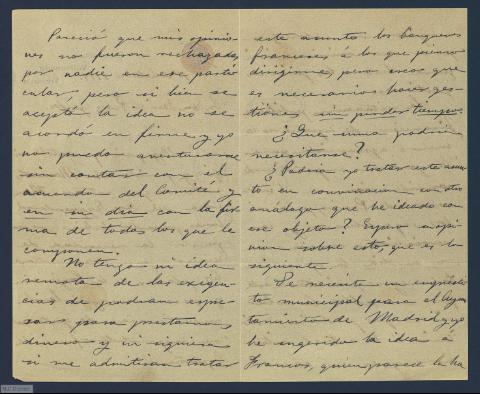 Pareció que mis opinio-
nes no fueron rechazadas
por nadie en ese parti
cular, pero si bien se
aceptó la idea no se
acordó en firme, y yo
no puedo aventurarme
sin contar con el
acuerdo del Comité y
en su dia con la fir
ma de todos los que le
componen.
No tengo ni idea
remota de las exigen
cias de podrian espe
rar para prestarnos
dinero y ni siquiera
si me admitirian tratar
este asunto los banqueros
franceses á los que pienso
dirigirme, pero creo que
es necesario hacer ges
tiones sin perder tiempo
¿Que suma podria
necesitarse?
¿Podria yo tratar este asun
to en convinacion con otro
análogo que he ideado con
ese objeto? Espero su opi
nion sobre esto, que es lo
siguiente.
Se necesita un emprésti
to municipal para el Ayun
tamiento de Madrid y yo
he sugerido la idea á
Francos, quien parece la ha